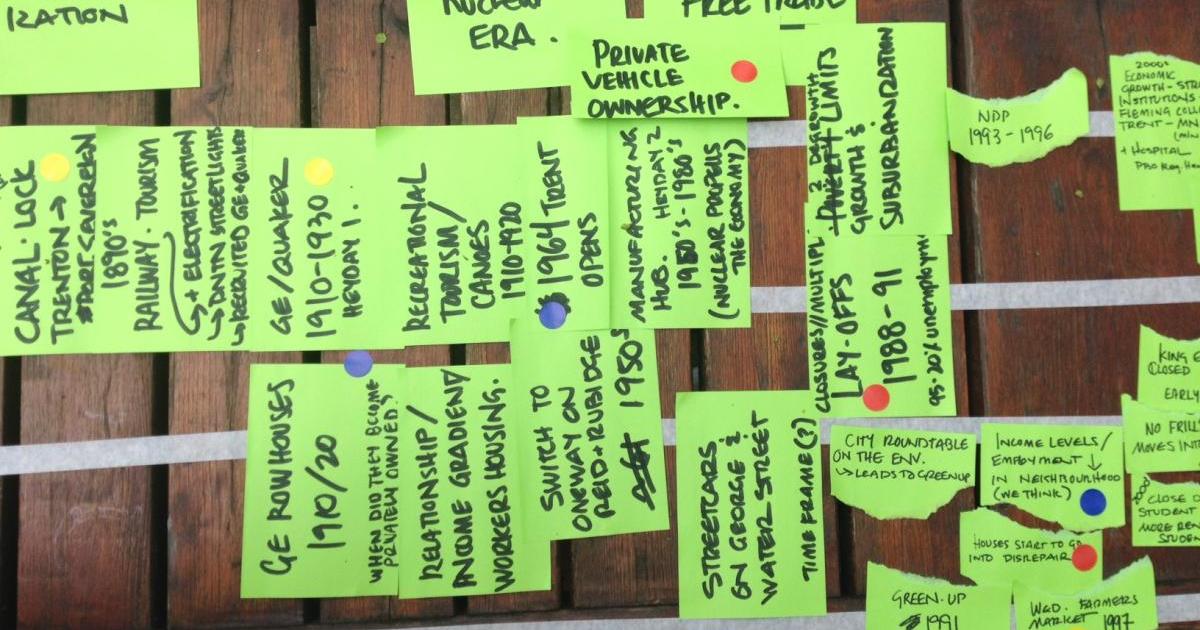 IZATION
NUCLEAR
ERA.
FREE TRADE
PRIVATE
VEHICLE
OWNERSHIP.
CANAL. LOCK
TRENTON →
1890's
RAILWAY. TOURISM
↳ + ELECTRIFICATION
↳ DWTN STREETLIGHTS
↳ RECRUITED GE + QUAKER
GE/QUAKER
1910-1930
HEYDAY 1.
RECREATIONAL
TOURISM/
CANOES
1910-1920
1964 TRENT
OPENS
MANUFACTURING
HUB. HEYDAY 2
1950's-1980's
(NUCLEAR PROPELS
THE ECONOMY)
LIMITS
GROWTH &
SUBURBANIZATION
CLOSURES//MULTIPL.
LAY-OFFS
1988-91
15-20% unemploym
NDP
1993-1996
2000s
ECONOMIC
GROWTH - STR
INSTITUTIONS -
FLEMING COLL
TRENT - MN
+ HOSPITAL
GE ROWHOUSES
1910/20
WHEN DID THEY BECOME
PRIVATELY OWNED?
RELATIONSHIP/
INCOME GRADIENT/
WORKERS HOUSING.
SWITCH TO
ONEWAY ON
REID + RUBIDGE
1950s
STREETCARS
ON GEORGE &
WATER STREET
TIME FRAME (?)
CITY ROUNDTABLE
ON THE ENV.
↳ LEADS TO GREENUP
INCOME LEVELS/
EMPLOYMENT ↓
IN NEIGHBOURHOOD
(WE THINK)
HOUSES START TO GO
INTO DISREPAIR
GREEN-UP
1991
WED. FARMERS
MARKET 1997
KING E
CLOSED
EARLY
NO FRILL
MOVES INT
CLOSE
STUDENT
MORE REN
STUDEN